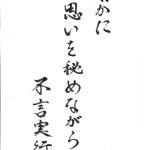 かに
思いを秘めながら
不言実行